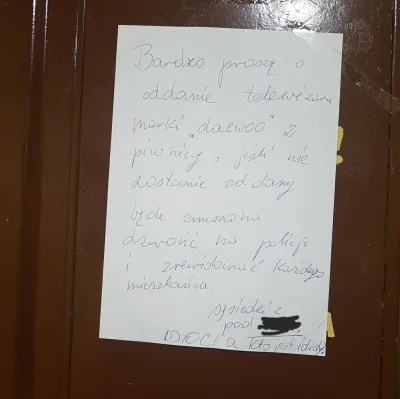 Bardzo proszę o
oddanie telewizora
marki "daewoo" z
piwnicy, jeśli nie
zostanie oddany
będę zmuszona
dzwonić na policje
i zrewidować każdego
mieszkańca.
sąsiedzi z
pod
IDIOCI a kto jest idiotą?